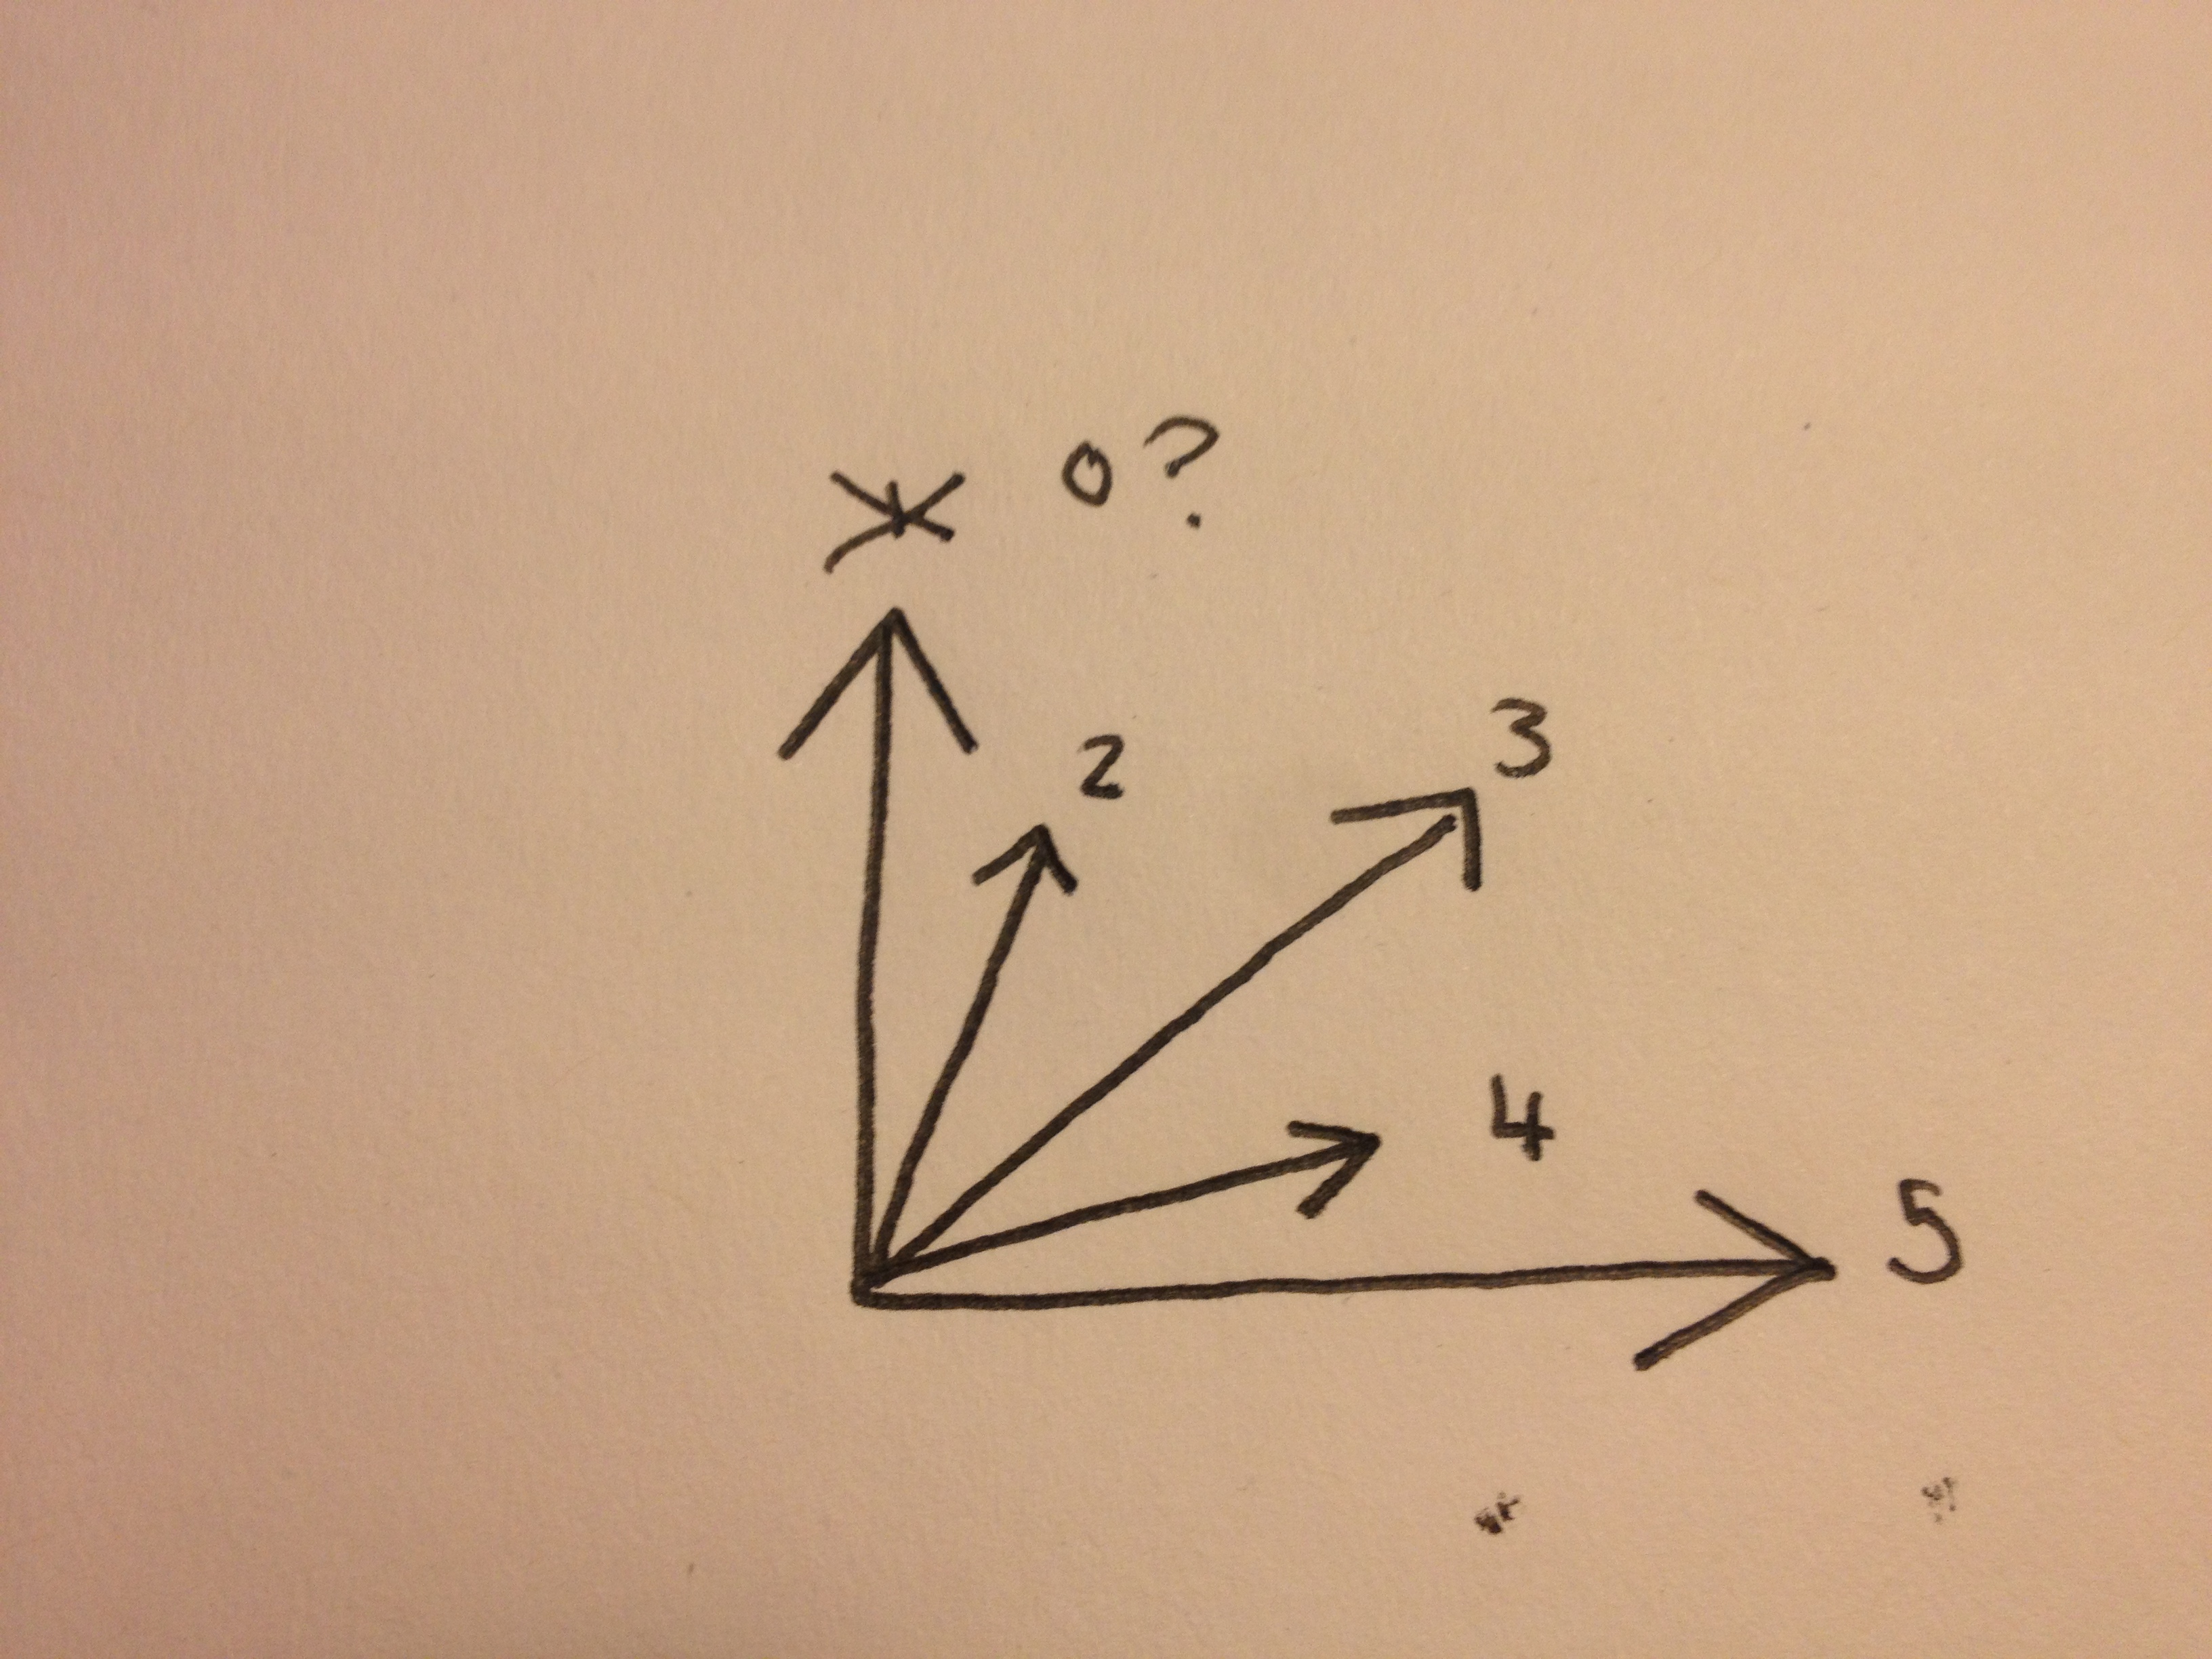 0?
2
3
4
5